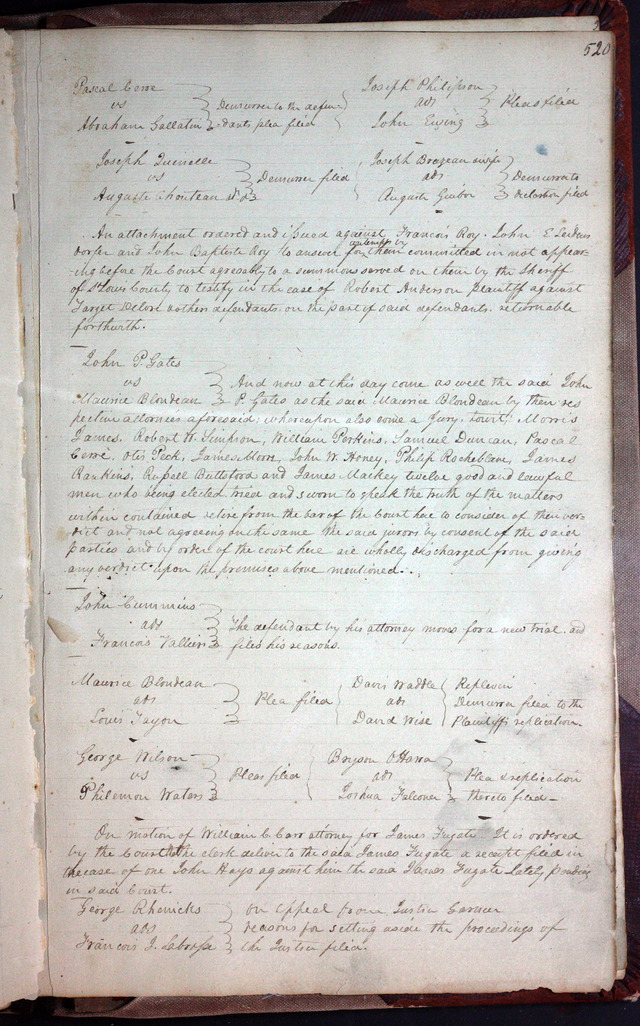 520
Pascal Cerre
vs
Abraham Gallatin
Demurrer to the defen-
dants plea filed
Joseph Philipson
ads
John Ewing
Pleas filed
Joseph
vs
Auguste Chouteau
Demurrer filed
Joseph Brazeau
ads
Auguste Guibor
Demurrer to
declaration filed
An attachment ordered and issued against Francois Roy. John E
dorfer and John Baptiste Roy to answer for their contempts by them committed in not appear-
ing before the Court agreeably to a summons served on them by the Sheriff
of St Louis County to testify in the case of Robert Anderson plaintiff against
Target & others defendants. on the part of said defendants. returnable
forthwith.
John P. Gates
vs
Maurice Blondeau
And now at this day come as well the said John
P. Gates as the said Maurice Blondeau by their res
pective attornies aforesaid; whereupon also come a Jury, towit; Morris
James, Robert W. Simpson, William Perkins, Samuel Duncan, Pascal
Cerré, Otis Peck, James Moon, John W. Honey, Philip Rocheblave, James
Rankins, Russell and James Mackey twelve good and lawful
men who being elected tried and sworn to speak the truth of the matters
within contained retire from the bar of the Court here to consider of their ver-
dict and not agreeing on the same the said jurors by consent of the said
parties and by order of the court here are wholly discharged from giving
any verdict upon the premises above mentioned.
John Cummins
ads
Francois Valliers
The defendant by his attorney moves for a new trial. and
files his reasons.
Maurice Blondeau
ads
Louis Tayon
Plea filed
Davis Waddle
ads
David Wise
Replevin
Demurrer filed to the
Plaintiffs replication
George Wilson
vs
Philemon Waters
Pleas filed
Bryson O'Hara
ads
Joshua Falconer
Plea & replication
thereto filed
On motion of William C. Carr attorney for James Fugate It is ordered
by the Court that the clerk deliver to the said James Fugate a receipt filed in
the case of one John Hays against him the said James Fugate lately pending
in said Court.
George Rhenicks
ads
Francois J. Labrosse
on appeal from Justice Garnier
reasons for setting aside the proceedings of
the Justice filed.